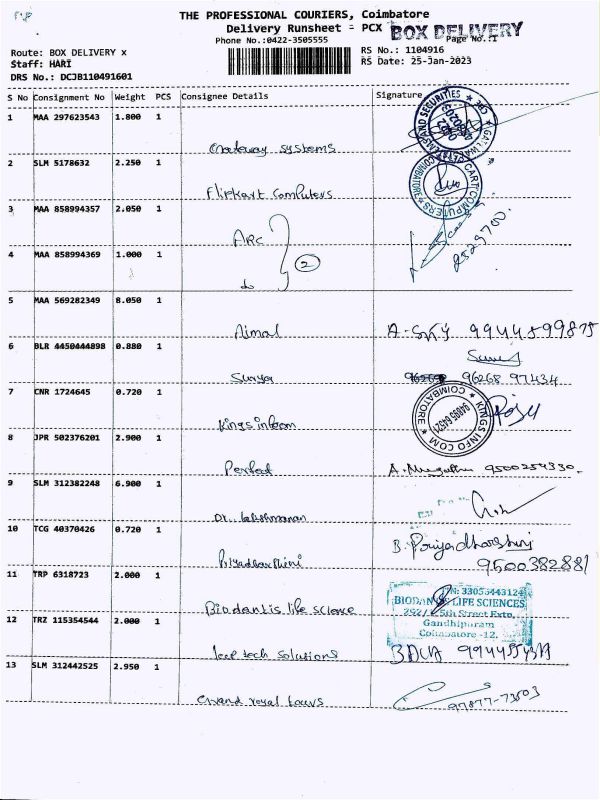 THE PROFESSIONAL COURIERS, Coimbatore
Delivery Runsheet - PCX BOX DELIVERY
Phone No.:0422-3505555 Page No.:1
Route: BOX DELIVERY x RS No.: 1104916
Staff: HARI RS Date: 25-Jan-2023
DRS No.: DCJB110491601
S No Consignment No Weight PCS Consignee Details Signature
1 MAA 297623543 1.800 1
Gateway systems
2 SLM 5178632 2.250 1
Flipkart Computers
3 MAA 858994357 2.050 1
ARC
4 MAA 858994369 1.000 1
2
do
8529700.
5 MAA 569282349 8.050 1
Nimal 9944599875
6 BLR 4450444898 0.880 1
Surya 96268 97434
7 CNR 1724645 0.720 1
Kings infocom
KINGS INFO COM
COIMBATORE
8 JPR 502376201 2.900 1
Perfect 9500254330.
9 SLM 312382248 6.900 1
Dr. lakshmanan
10 TCG 40370426 0.720 1
Priyadharshini B. Priyadharshini
9500382881
11 TRP 6318723 2.000 1
Biodantis life science
BIODANTIS LIFE SCIENCES
5th Street Extn,
Gandhipuram
Coimbatore -12.
12 TRZ 115354544 2.000 1
tech solutions
13 SLM 312442525 2.950 1
Grand royal tours 97877-73503